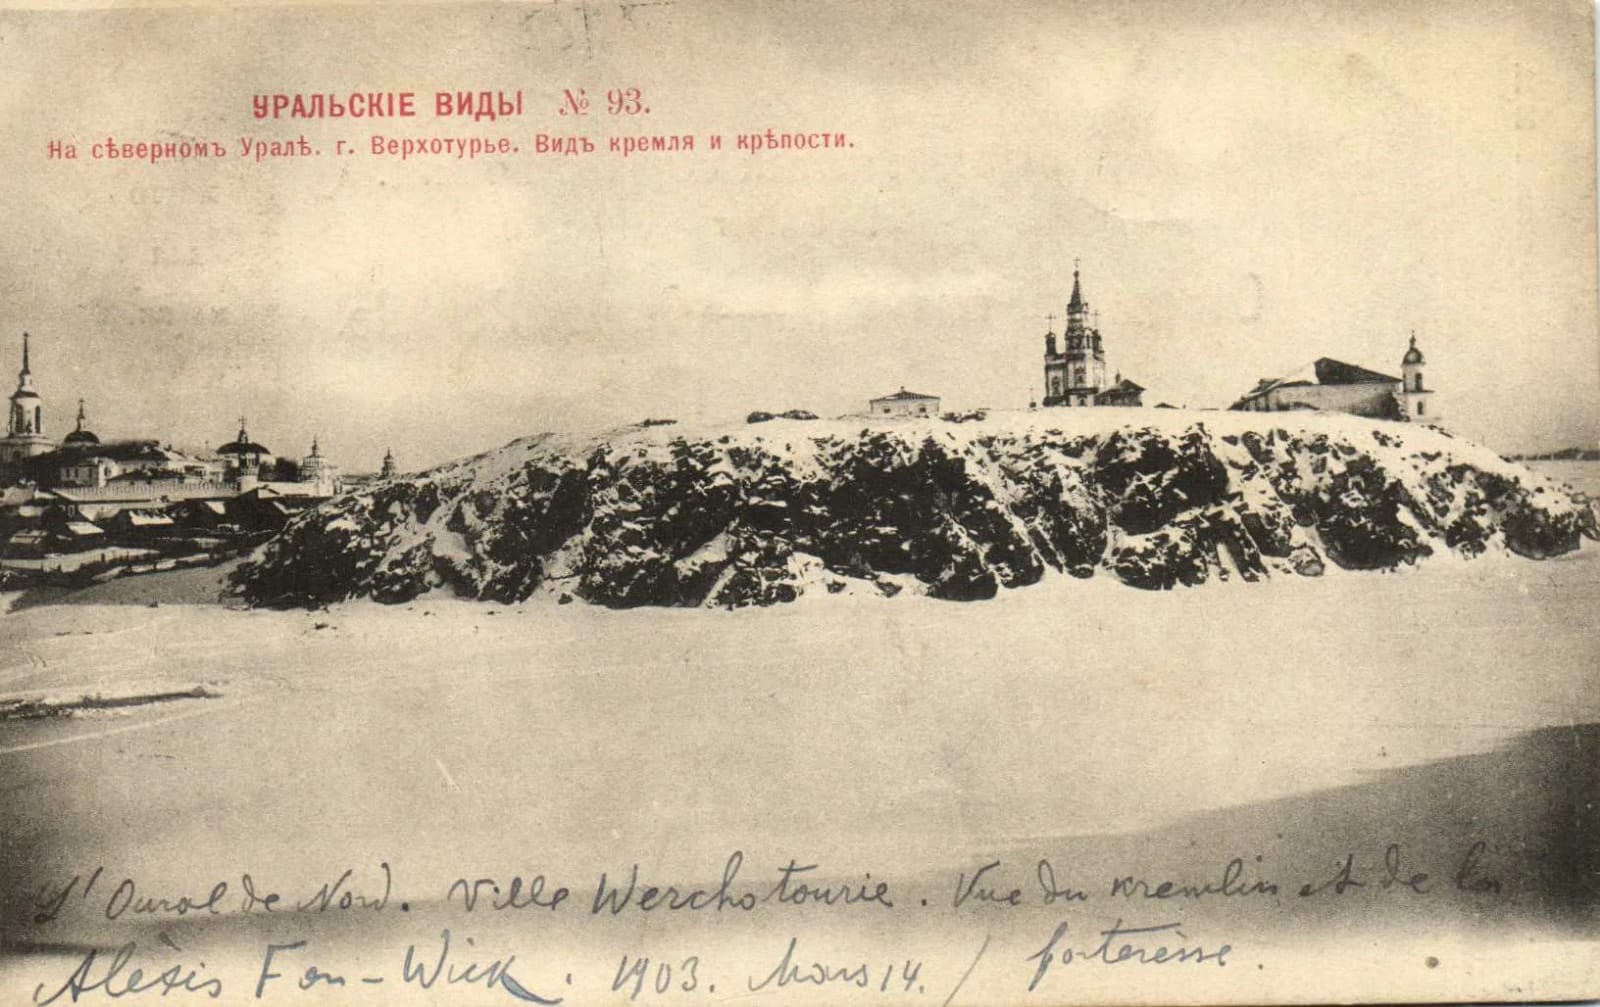 УРАЛЬСКІЕ ВИДЫ № 93.
На сѣверномъ Уралѣ. г. Верхотурье. Видъ кремля и крѣпости.
L'Oural de Nord. Ville Werchotourie. Vue du kremlin et de la
Alèxis Fon-Wick. 1903. Mars 14. / forterèsse.